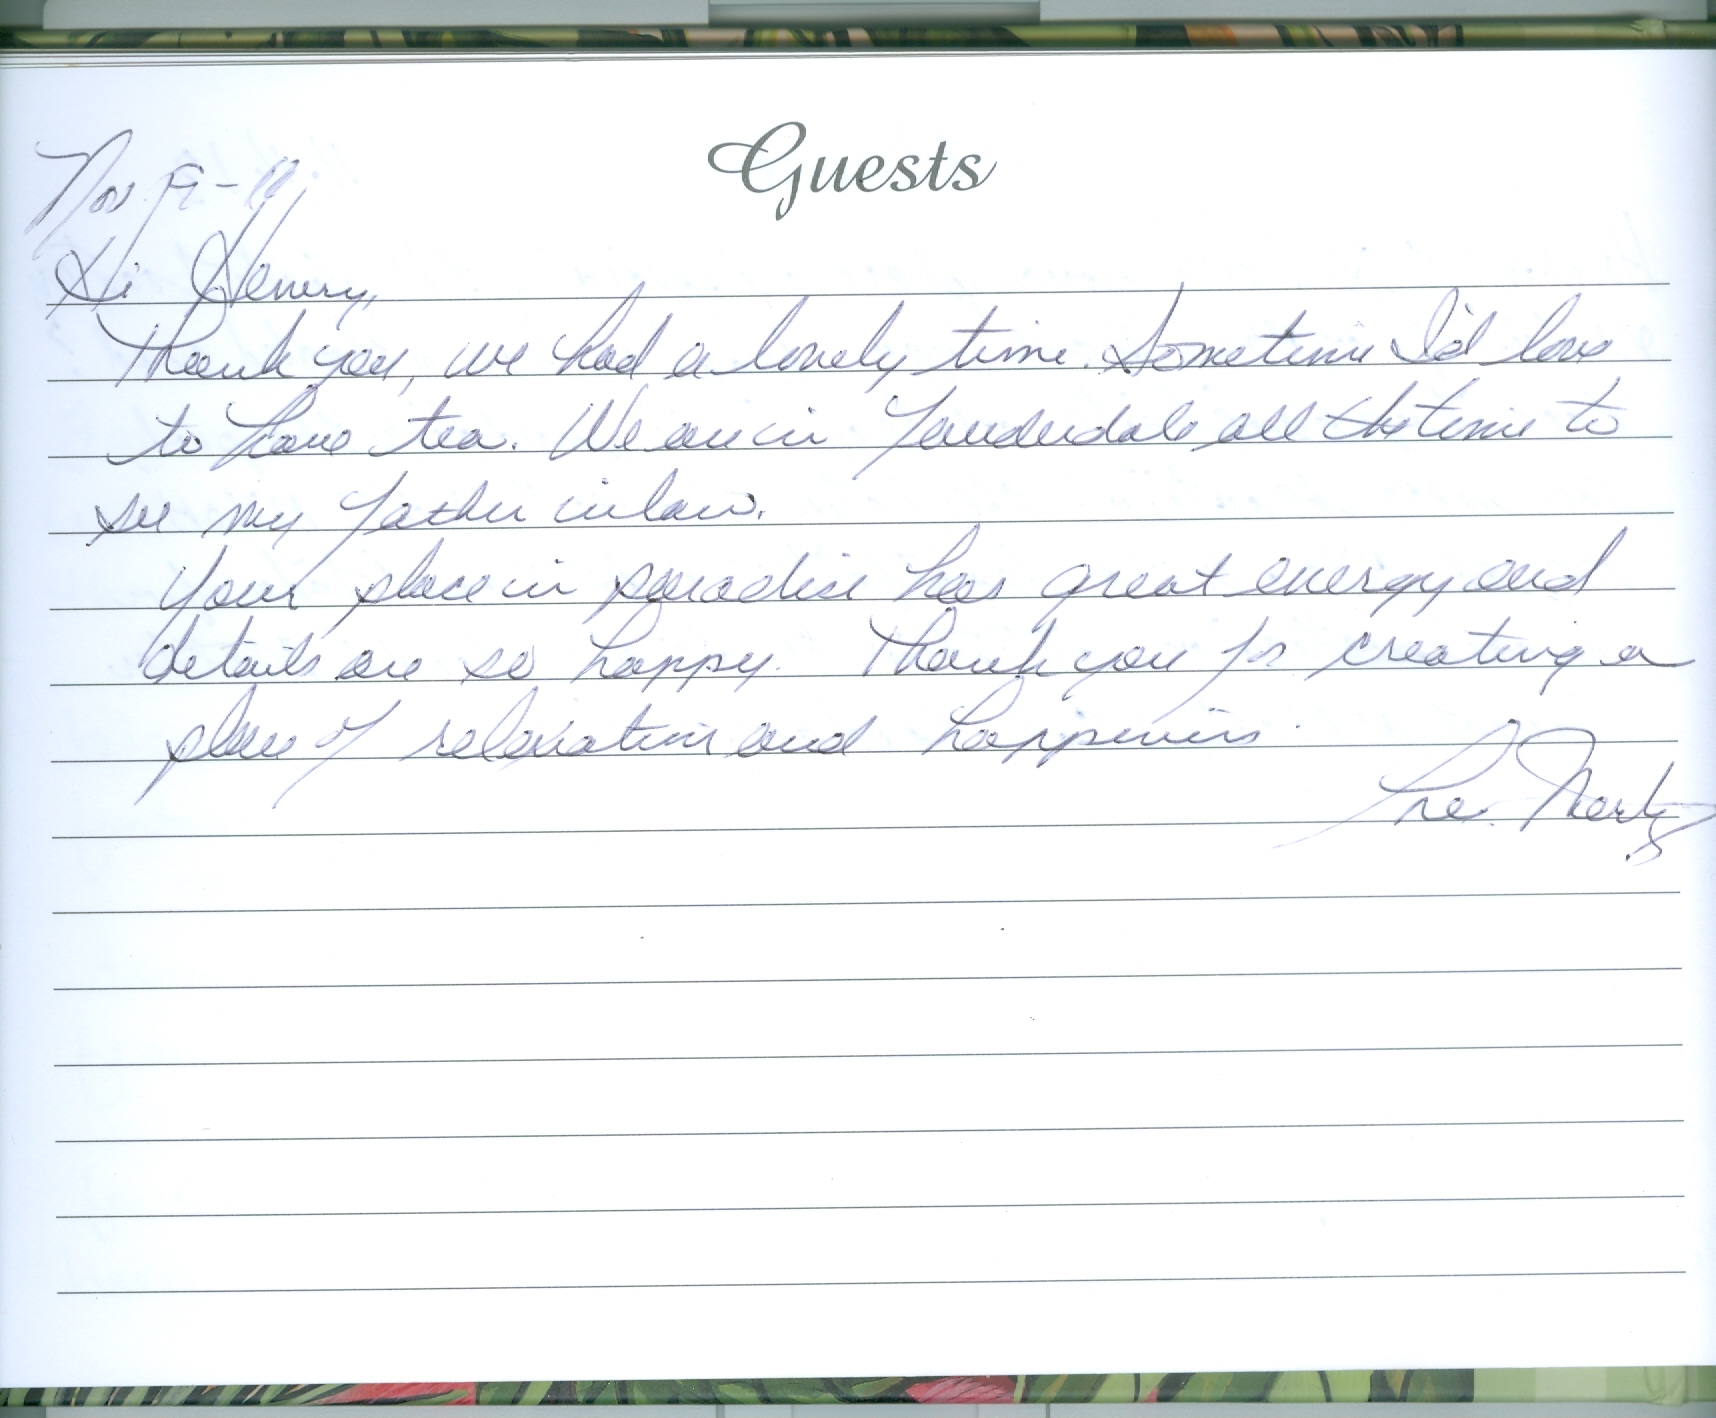 Guests
Nov 9-
Hi Henery,
Thank you, we had a lovely time. Sometime I'd love
to have tea. We are in Lauderdale all the time to
see my Father in law.
Your place in paradise has great energy and
details are so happy. Thank you for creating a
place of relaxation and happiness.